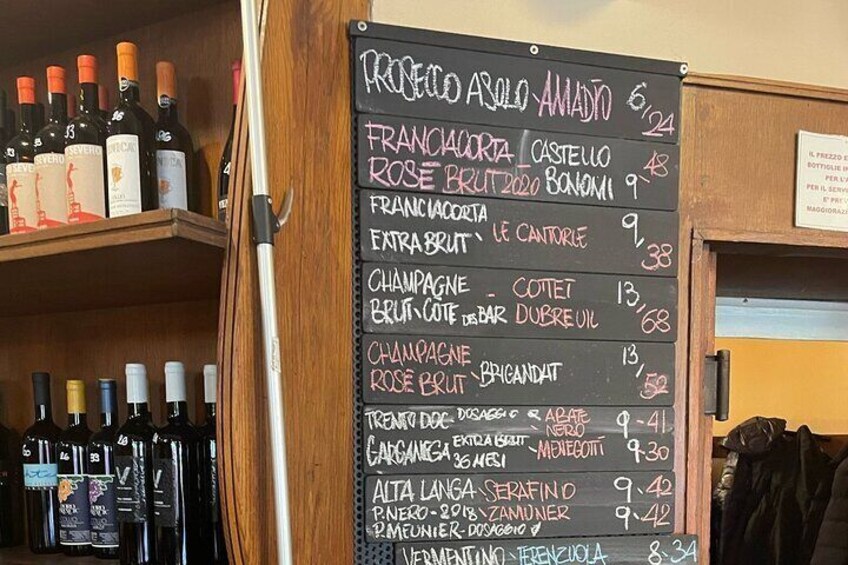 PROSECCO ASOLO AMADIO 6/24
FRANCIACORTA CASTELLO 48
ROSÉ BRUT 2020 BONOMI 9-
FRANCIACORTA 9/
EXTRA BRUT LE CANTORIE 38
CHAMPAGNE - COTTET 13/
BRUT CÔTE DES BAR DUBREUIL 68
CHAMPAGNE 13/
ROSÉ BRUT BRIGANDAT 52
TRENTO DOC DOSAGGIO ABATE NERO 9-41
GARGANEGA EXTRA BRUT 36 MESI MENEGOTTI 9-30
ALTA LANGA SERAFINO 9-42
P.NERO-2018 ZAMUNER 9-42
P.MEUNIER-DOSAGGIO
VERMENTINO TERENZUOLA 8-34
IL PREZZO E
BOTTIGLIE IN
PER L'A
PER IL SERV
E' PREV
MAGGIORAZI
SEVERO
SEVERO